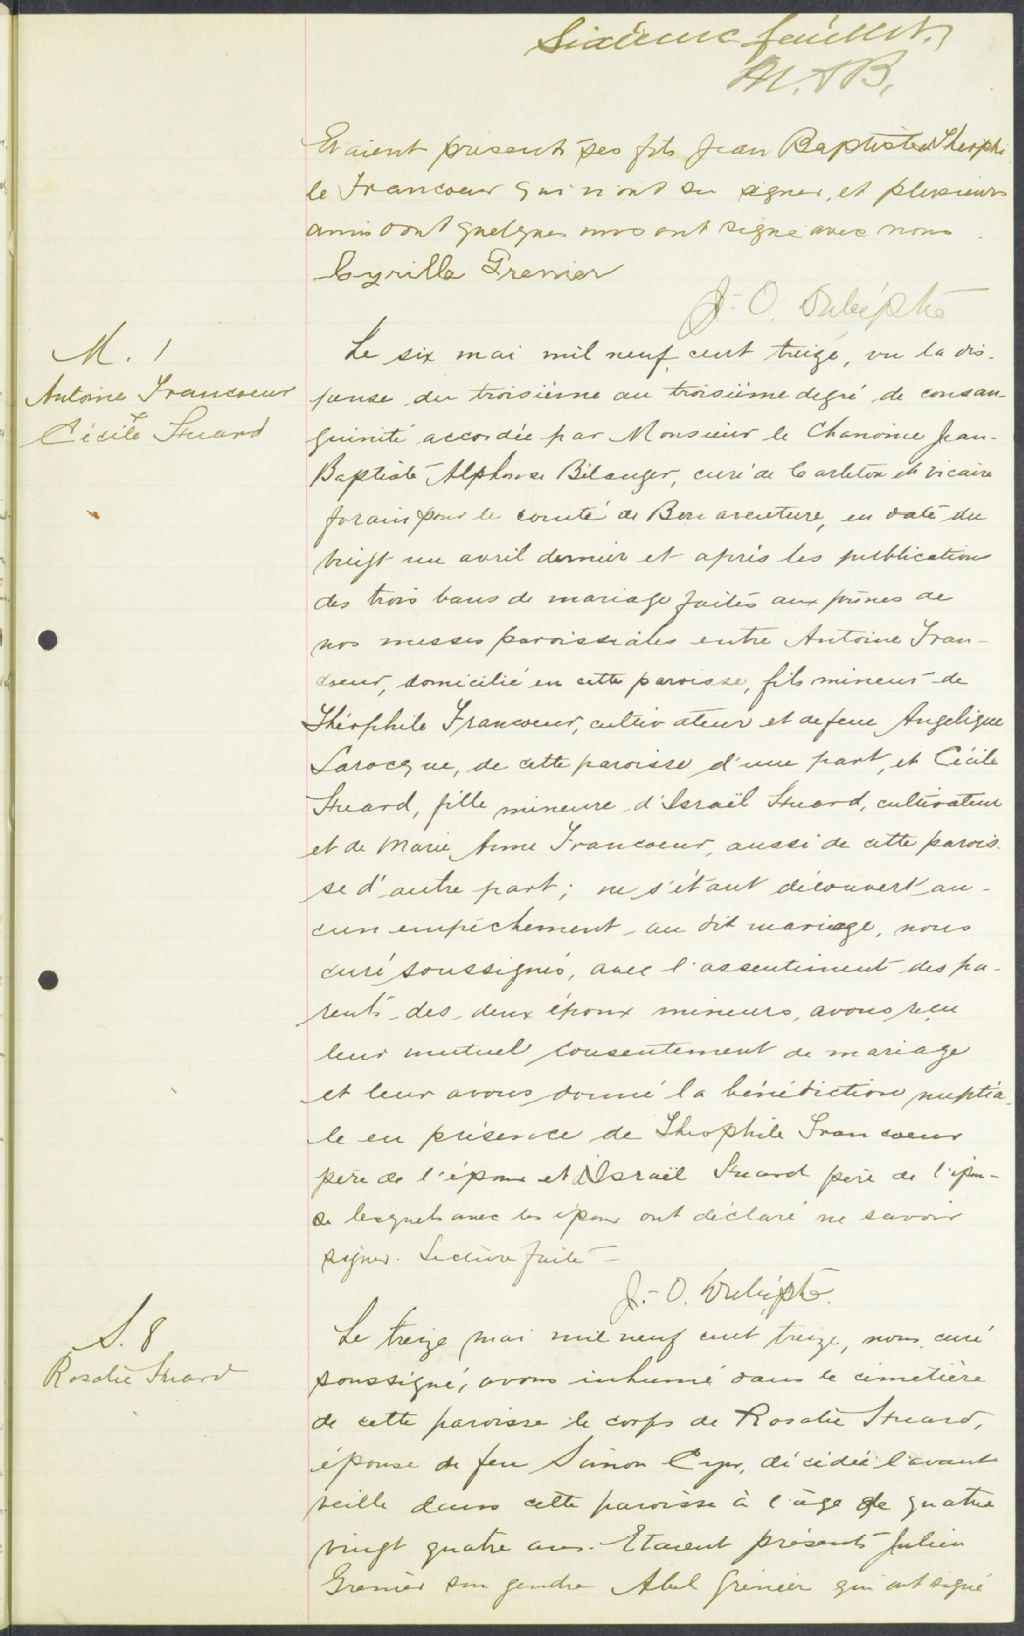 Sixième feuillet.
M. A B.
Etaient présents ses fils Jean Baptiste & Théophi
le Francoeur qui n'ont su signer, et plusieurs
amis dont quelques uns ont signé avec nous.
Cyrille Grenier
J.-O. Drapeau
M. 1
Antoine Francoeur
&
Cécile Huard
Le six mai mil neuf cent treize, vu la dis-
pense du troisième au troisième degré de consan-
guinité accordée par Monsieur le Chanoine Jean-
Baptiste Alphonse Bélanger, curé de Carleton et vicaire
forain pour le comté de Bonaventure, en date du
vingt un avril dernier et après les publications
des trois bans de mariage faites aux prônes de
nos messes paroissiales entre Antoine Fran-
coeur, domicilié en cette paroisse, fils mineur de
Théophile Francoeur, cultivateur et de feue Angelique
Larocque, de cette paroisse d'une part, et Cécile
Huard, fille mineure d'Israël Huard, cultivateur
et de Marie Anne Francoeur, aussi de cette parois-
se d'autre part; ne s'étant découvert au-
cun empêchement au dit mariage, nous
curé soussignés, avec l'assentiment des pa-
rents des deux époux mineurs, avons reçu
leur mutuel consentement de mariage
et leur avons donné la bénédiction nuptia-
le en présence de Théophile Francoeur
père de l'époux et d'Israël Huard père de l'épou-
se lesquels avec les époux ont déclaré ne savoir
signer. Lecture faite -
J.-O.
S. 8
Rosalie Huard
Le treize mai mil neuf cent treize, nous curé
soussigné, avons inhumé dans le cimetière
de cette paroisse le corps de Rosalie Huard,
épouse de feu Simon Cyr, décédée l'avant
veille dans cette paroisse à l'âge de quatre
vingt quatre ans. Etaient présents Julien
Grenier son gendre Abel Grenier qui ont signé